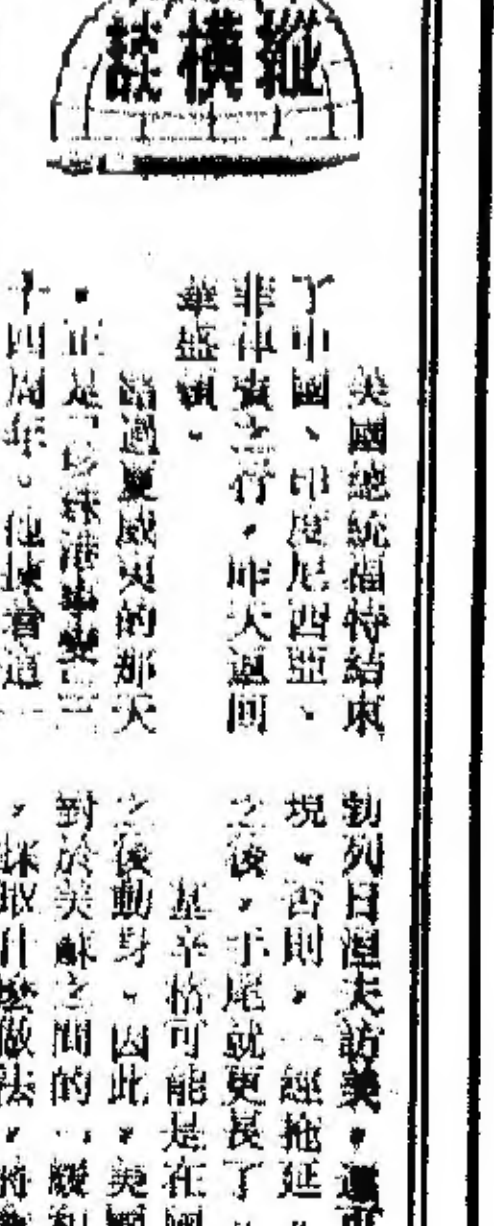 縱橫談
美國總統福特結束
了中國、印度尼西亞、
菲律賓之行，昨天返回
華盛頓。
路過夏威夷的那天
，正是「珍珠港事變」三
十四周年。他揀着這一
勃列日湼夫訪美，
現。否則，一經拖延
之後，手尾就更長了。
基辛格可能是在
之後動身。因此，美國
對於美蘇之間的「緩和
，採取什麼做法，將